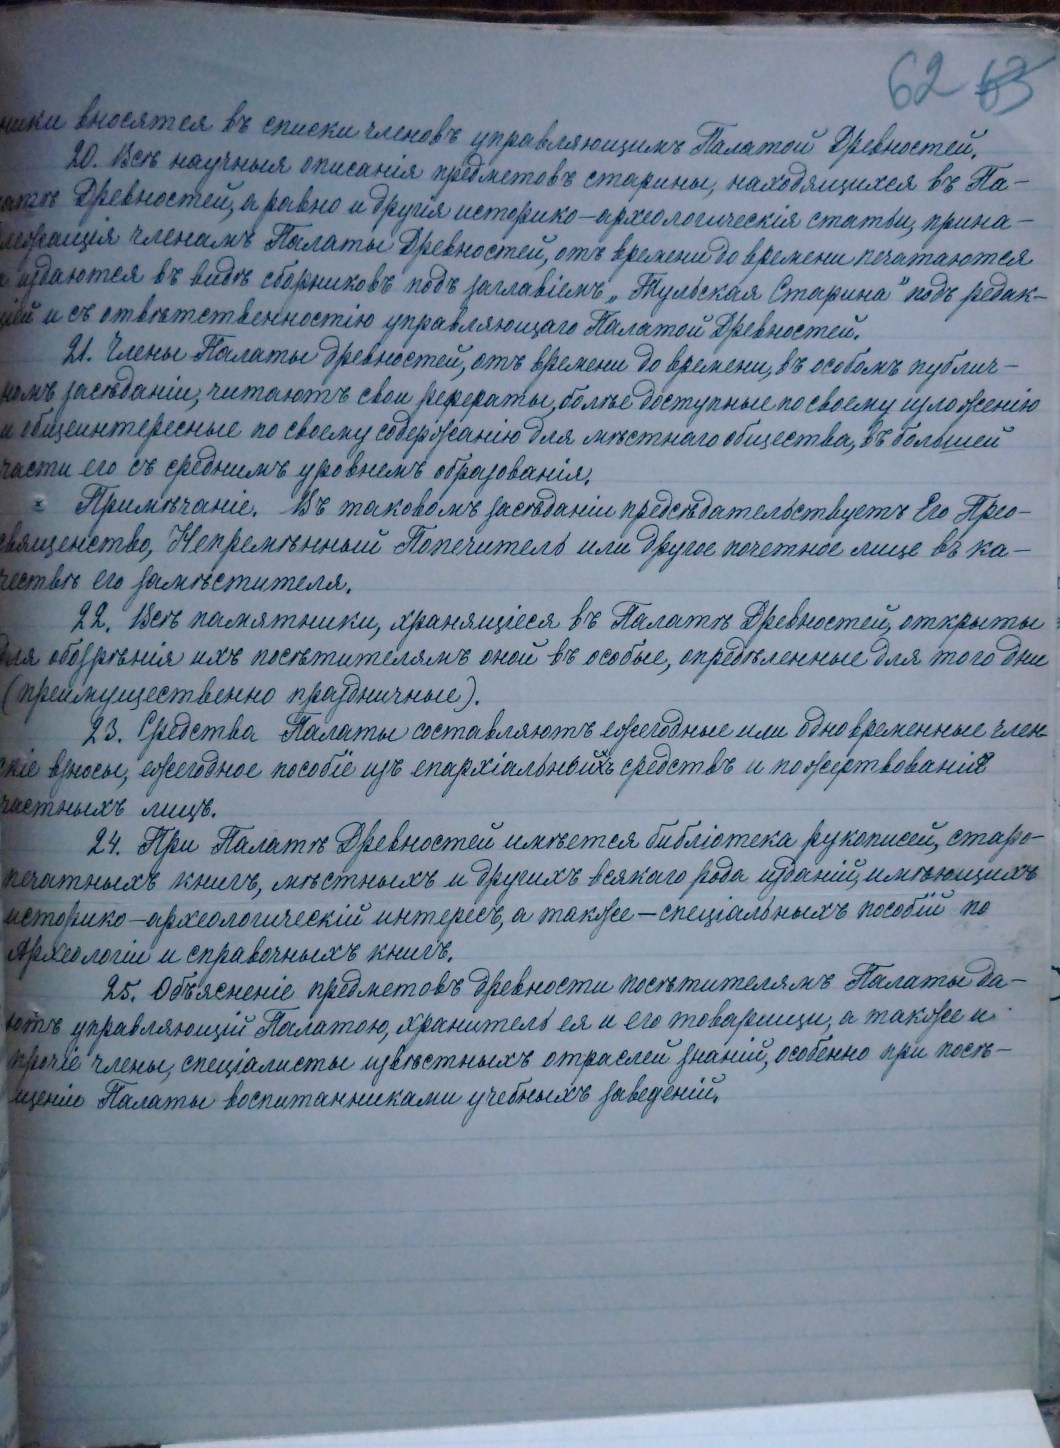 62 63
ники вносятся въ списки членовъ управляющимъ Палатой Древностей.
20. Всѣ научныя описанія предметовъ старины, находящихся въ Па-
латѣ Древностей, а равно и другія историко-археологическія статьи, прина-
лежащія членамъ Палаты Древностей, отъ времени до времени печатаются
и издаются въ видѣ сборниковъ подъ заглавіемъ „Тульская Старина" подъ редак-
ціей и съ отвѣтственностію управляющаго Палатой Древностей.
21. Члены Палаты древностей, отъ времени до времени, въ особомъ публич-
номъ засѣданіи, читаютъ свои рефераты, болѣе доступные по своему изложенію
и общеинтересные по своему содержанію для мѣстнаго общества, въ большей
части его съ среднимъ уровнемъ образованія.
Примѣчаніе. Въ таковомъ засѣданіи предсѣдательствуетъ Его Прео-
священство, Непремѣнный Попечитель или другое почетное лице въ ка-
чествѣ его замѣстителя.
22. Всѣ памятники, хранящіеся въ Палатѣ Древностей, открыты
для обозрѣнія ихъ посѣтителямъ оной въ особые, опредѣленные для того дни
(преимущественно праздничные).
23. Средства Палаты составляютъ ежегодные или одновременные член
скіе взносы, ежегодное пособіе изъ епархіальныхъ средствъ и пожертвованія
частныхъ лицъ.
24. При Палатѣ Древностей имѣется библіотека рукописей, старо-
печатныхъ книгъ, мѣстныхъ и другихъ всякаго рода изданій, имѣющихъ
историко-археологическій интересъ, а также - спеціальныхъ пособій по
Археологіи и справочныхъ книгъ.
25. Объясненіе предметовъ древности посѣтителямъ Палаты да-
ютъ управляющій Палатою, хранитель ея и его товарищи, а также и
прочіе члены, спеціалисты извѣстныхъ отраслей знаній, особенно при посѣ-
щеніи Палаты воспитанниками учебныхъ заведеній.